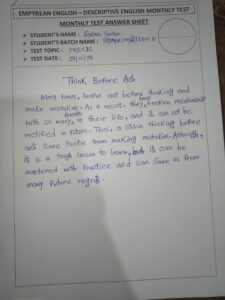 EMPYREAN ENGLISH – DESCRIPTIVE ENGLISH MONTHLY TEST
MONTHLY TEST ANSWER SHEET
➤ STUDENT'S NAME : Rakesh Sarkar
➤ STUDENT'S BATCH NAME :
➤ TEST TOPIC : PRECIS
➤ TEST DATE :
Think Before Act
Many times, People act before thinking and
make mistakes. As a result, they have broken relationship
with so many friends in their life, and it can not be
rectified in future. Thus, a little thinking before
act save people from making mistakes. Although,
it is a tough lesson to learn, but it can be
mastered with practice and can save us from
many future regrets.